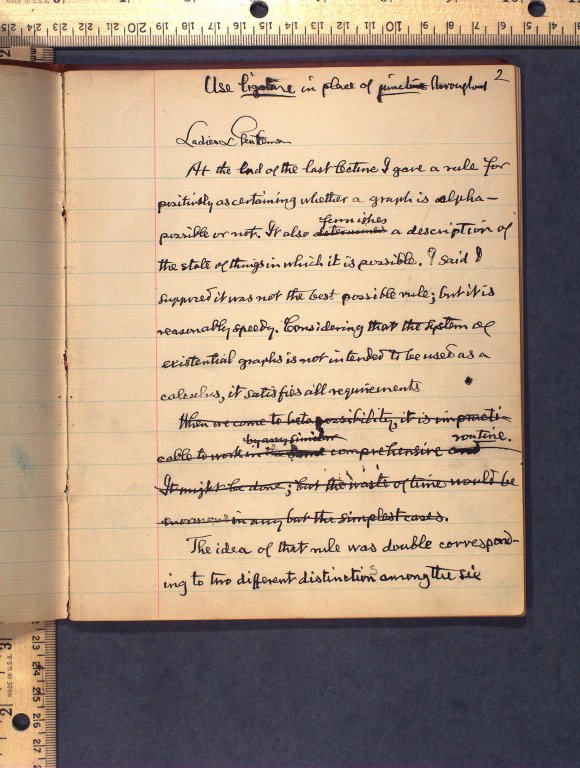 Use ligature in place of juncture throughout 2
Ladies & Gentlemen
At the End of the last lecture I gave a rule for
positively ascertaining whether a graph is alpha-
furnishes
possible or not. It also determined a description of
the state of things in which it is possible. I said I
supposed it was not the best possible rule; but it is
reasonably speedy. Considering that the system of
existential graphs is not intended to be used as a
calculus, it satisfies all requirements
When we come to beta possibility, it is impracti-
by any similar routine.
cable to work in comprehensive and
It might be done; but the waste of time would be
enormous in any but the simplest cases.
The idea of that rule was double correspond-
ing to two different distinctions among the six